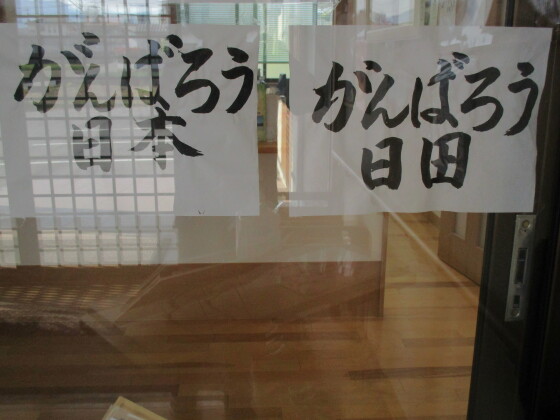 がんばろう
日本
がんばろう
日田